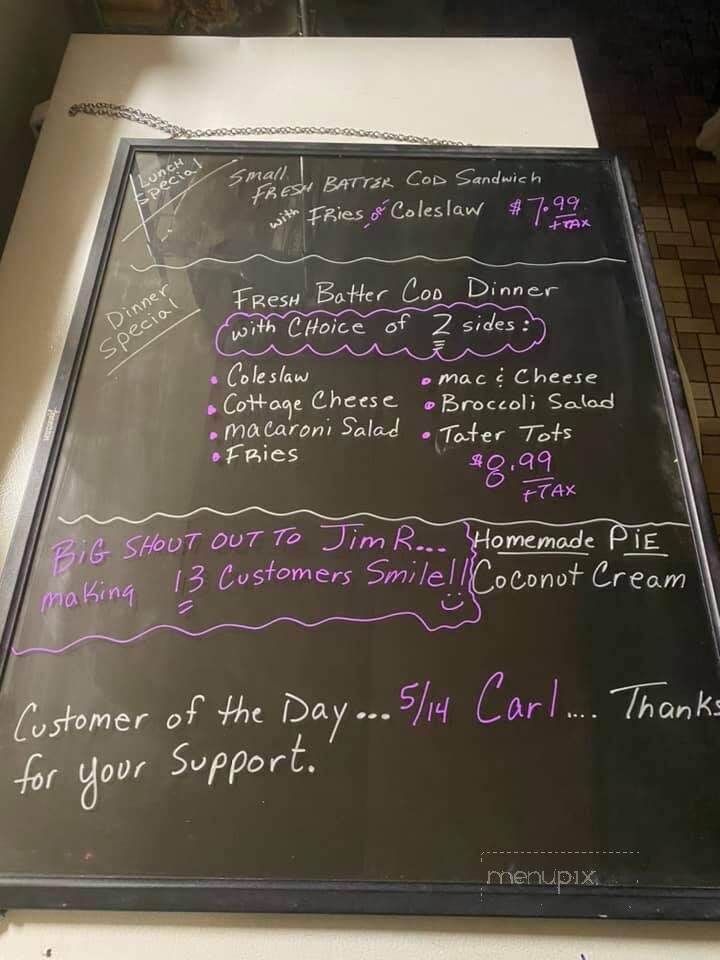 Lunch Special
Small
FRESH BATTER COD Sandwich
with FRies OR Coleslaw $7.99
+TAX
Dinner Special
FRESH Batter COD Dinner
with CHoice of 2 sides:
• Coleslaw
• Cottage Cheese
• macaroni Salad
• FRies
• mac & Cheese
• Broccoli Salad
• Tater Tots
$8.99
+TAX
BiG SHOUT OUT TO Jim R...
making 13 Customers Smile!!
Homemade PiE
Coconut Cream
Customer of the Day... 5/14 Carl.... Thanks
for your Support.
menupix